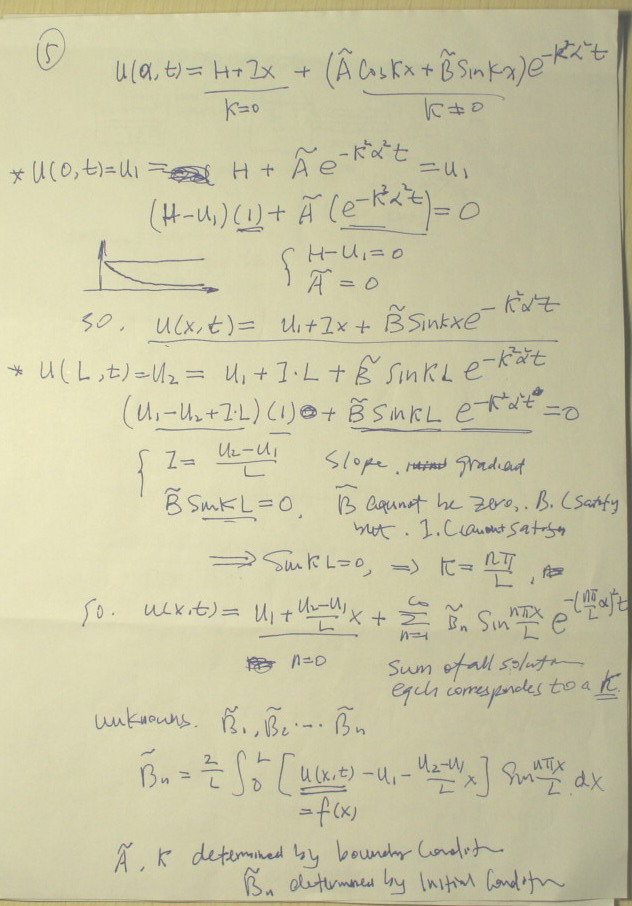 ⑤
u(x,t) = H+Ix + (Ã cosKx + B̃ sinKx)e^{-K²α²t}
K=0 K≠0
* u(0,t)=u₁ = H + Ã e^{-K²α²t} = u₁
(H-u₁)(1) + Ã (e^{-K²α²t}) = 0
{ H-u₁=0
Ã = 0
so. u(x,t) = u₁+Ix + B̃ sinkx e^{-K²α²t}
* u(L,t)=u₂ = u₁ + I·L + B̃ sinKL e^{-K²α²t}
(u₁-u₂+I·L)(1) + B̃ sinKL e^{-K²α²t} = 0
{ I = (u₂-u₁)/L slope. gradient
B̃ sinKL = 0, B̃ cannot be zero,. B.C satisfy
but. I.C cannot satisfy
⟹ sinKL=0, ⟹ K = nπ/L,
so. u(x,t) = u₁ + (u₂-u₁)/L x + ∑_{n=1}^{∞} B̃n sin nπx/L e^{-(nπ/L α)²t}
n=0 sum of all solution
each correspondes to a K
unknowns. B̃₁, B̃₂ ··· B̃n
B̃n = 2/L ∫₀^L [u(x,t) - u₁ - (u₂-u₁)/L x] sin nπx/L dx
=f(x)
Ã, K determined by boundary Condition
B̃n determined by Initial Condition